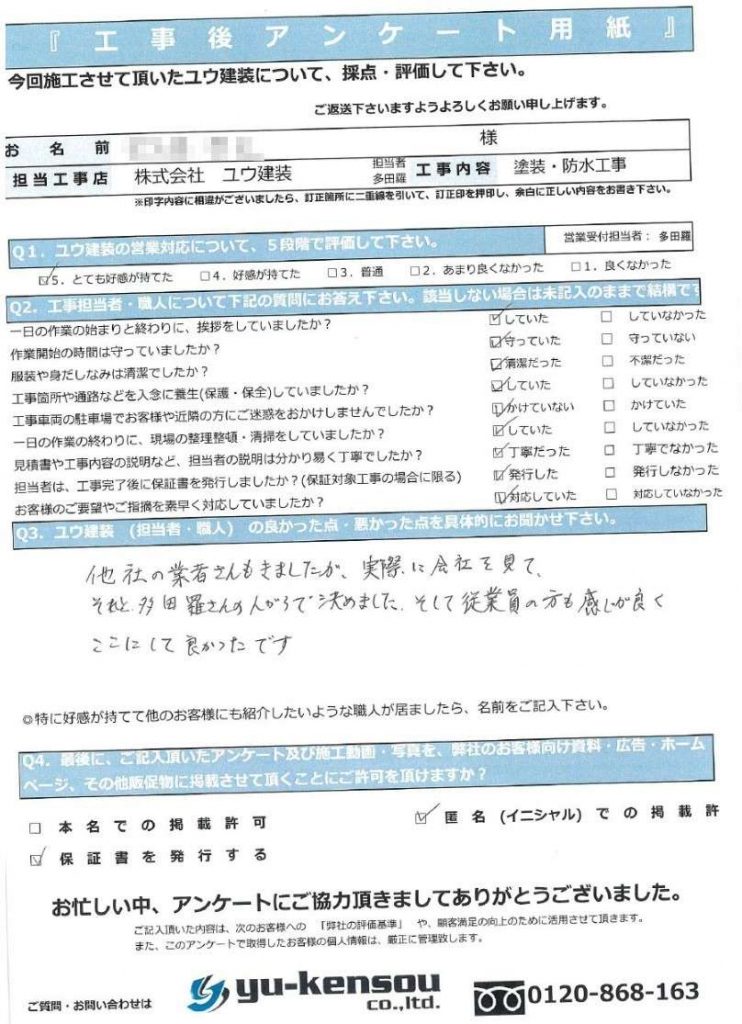 『工事後アンケート用紙』
今回施工させて頂いたユウ建装について、採点・評価して下さい。
ご返送下さいますようよろしくお願い申し上げます。
お名前 様
担当工事店 株式会社 ユウ建装 担当者 多田羅 工事内容 塗装・防水工事
※印字内容に相違がございましたら、訂正箇所に二重線を引いて、訂正印を押印し、余白に正しい内容をお書き下さい。
Q1．ユウ建装の営業対応について、5段階で評価して下さい。 営業受付担当者：多田羅
☑5．とても好感が持てた □4．好感が持てた □3．普通 □2．あまり良くなかった □1．良くなかった
Q2．工事担当者・職人について下記の質問にお答え下さい。該当しない場合は未記入のままで結構です
一日の作業の始まりと終わりに、挨拶をしていましたか？ ☑していた □ していなかった
作業開始の時間は守っていましたか？ ☑守っていた □ 守っていない
服装や身だしなみは清潔でしたか？ ☑清潔だった □ 不潔だった
工事箇所や通路などを入念に養生(保護・保全)していましたか？ ☑していた □ していなかった
工事車両の駐車場でお客様や近隣の方にご迷惑をおかけしませんでしたか？ ☑かけていない □ かけていた
一日の作業の終わりに、現場の整理整頓・清掃をしていましたか？ ☑していた □ していなかった
見積書や工事内容の説明など、担当者の説明は分かり易く丁寧でしたか？ ☑丁寧だった □ 丁寧でなかった
担当者は、工事完了後に保証書を発行しましたか？(保証対象工事の場合に限る) ☑発行した □ 発行しなかった
お客様のご要望やご指摘を素早く対応していましたか？ ☑対応していた □ 対応していなかった
Q3．ユウ建装 (担当者・職人) の良かった点・悪かった点を具体的にお聞かせ下さい。
他社の業者さんもきましたが、実際に会社を見て、
それと、多田羅さんの人がらで決めました、そして従業員の方も感じが良く
ここにして良かったです
◎特に好感が持てて他のお客様にも紹介したいような職人が居ましたら、名前をご記入下さい。
Q4．最後に、ご記入頂いたアンケート及び施工動画・写真を、弊社のお客様向け資料・広告・ホーム
ページ、その他販促物に掲載させて頂くことにご許可を頂けますか？
□ 本名での掲載許可 ☑ 匿名(イニシャル)での掲載許
☑ 保証書を発行する
お忙しい中、アンケートにご協力頂きましてありがとうございました。
ご記入頂いた内容は、次のお客様への 「弊社の評価基準」 や、顧客満足の向上のために活用させて頂きます。
また、このアンケートで取得したお客様の個人情報は、厳正に管理致します。
ご質問・お問い合わせは yu-kensou co.,ltd. 0120-868-163